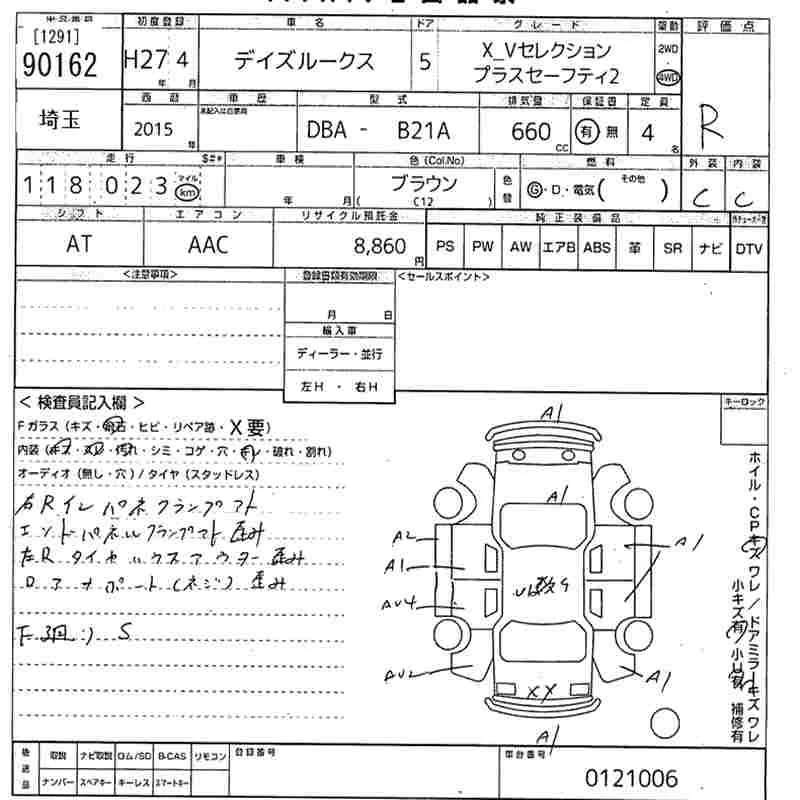 [1291] 初度登録 車名 ドア グレード 駆動 評価点
90162 H27 4 年 月 デイズルークス 5 X_Vセレクション プラスセーフティ2 2WD 4WD R
西暦 車歴 型式 排気量 保証書 定員
埼玉 2015 年 未記入は自家用 DBA - B21A 660 CC 有 無 4 名
走行 $#* 車検 色(Col.No) 燃料 外装 内装
118,023 マイル km 年 月 ブラウン (C12) 色替 G・D・電気( その他 ) C C
シフト エアコン リサイクル預託金 純正装備品
AT AAC 8,860 円 PS PW AW エアB ABS 革 SR ナビ DTV
<注意事項> 登録書類有効期限 <セールスポイント>
月 日
輸入車
ディーラー・並行
左H ・ 右H
< 検査員記入欄 > キーロック
Fガラス(キズ・飛石・ヒビ・リペア跡・X要)
内装(キズ・スレ・汚れ・シミ・コゲ・穴・キレ・破れ・割れ)
オーディオ(無し・穴)/タイヤ(スタッドレス)
右Rインパネクランプマト
エンドパネルクランプマト歪み
右Rタイヤハウスアウター歪み
歪み
S
A1
A1
A2
A1
A1
AU4
AU2
XX
A1
A1
ホイル・CPキズ ワレ/ドアミラーキズ ワレ
小キズ有 小U有 補修有
後送品 取説 ナビ取説 ロム/SD B-CAS リモコン 登録番号 車台番号
ナンバー スペアキー キーレス スマートキー 0121006